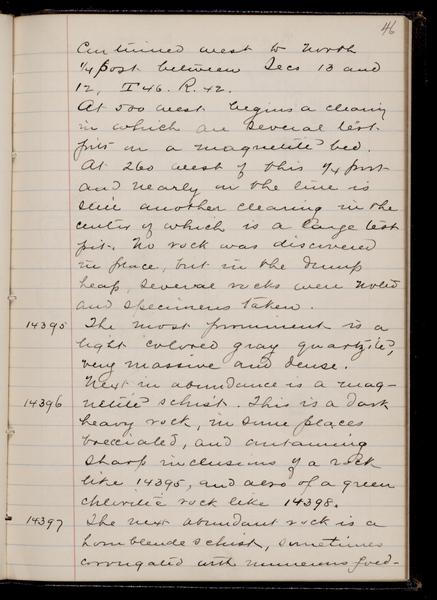 46
Continued west to North
1/4 post between Secs 13 and
12, T 46. R. 42.
At 500 west begins a clearing
in which are several test-
pits on a magnetite bed.
At 260 west of this 1/4 post
and nearly on the line is
still another clearing in the
center of which is a large test
pit. No rock was discovered
in place, but in the dump
heap, several rocks were noted
and specimens taken.
14395 The most prominent is a
light colored gray quartzite,
very massive and dense.
Next in abundance is a mag-
14396 netitic schist. This is a dark
heavy rock, in some places
brecciated, and containing
sharp inclusions of a rock
like 14395, and also of a green
chloritic rock like 14398.
14397 The next abundant rock is a
hornblende schist, sometimes
corrugated with numerous